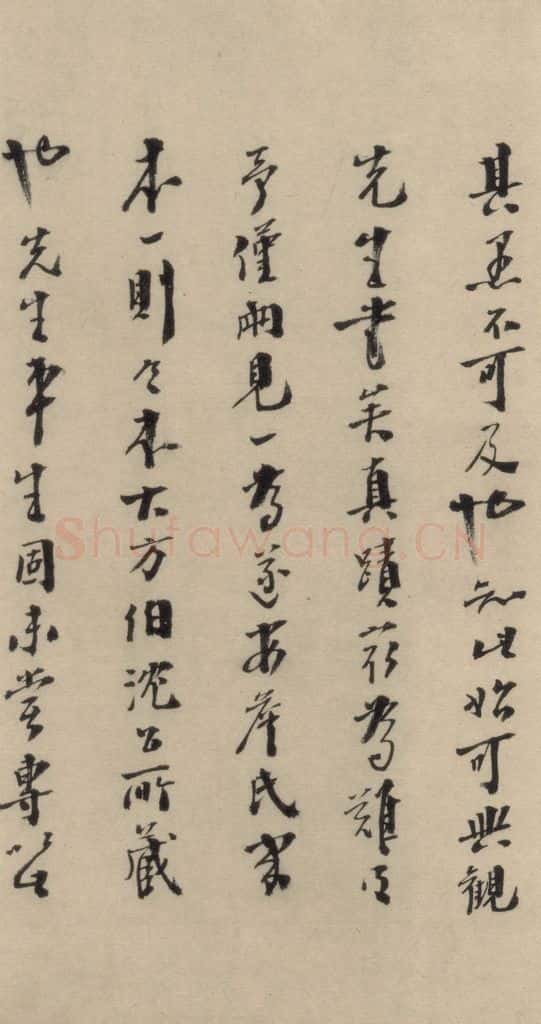 其愚不可及也知此始可與觀
先生書矣真蹟亦為難得
予僅兩見一為遂安詹氏家
本一則今本大方伯沈公所藏
也先生平生固未嘗專此
Shufawang.CN